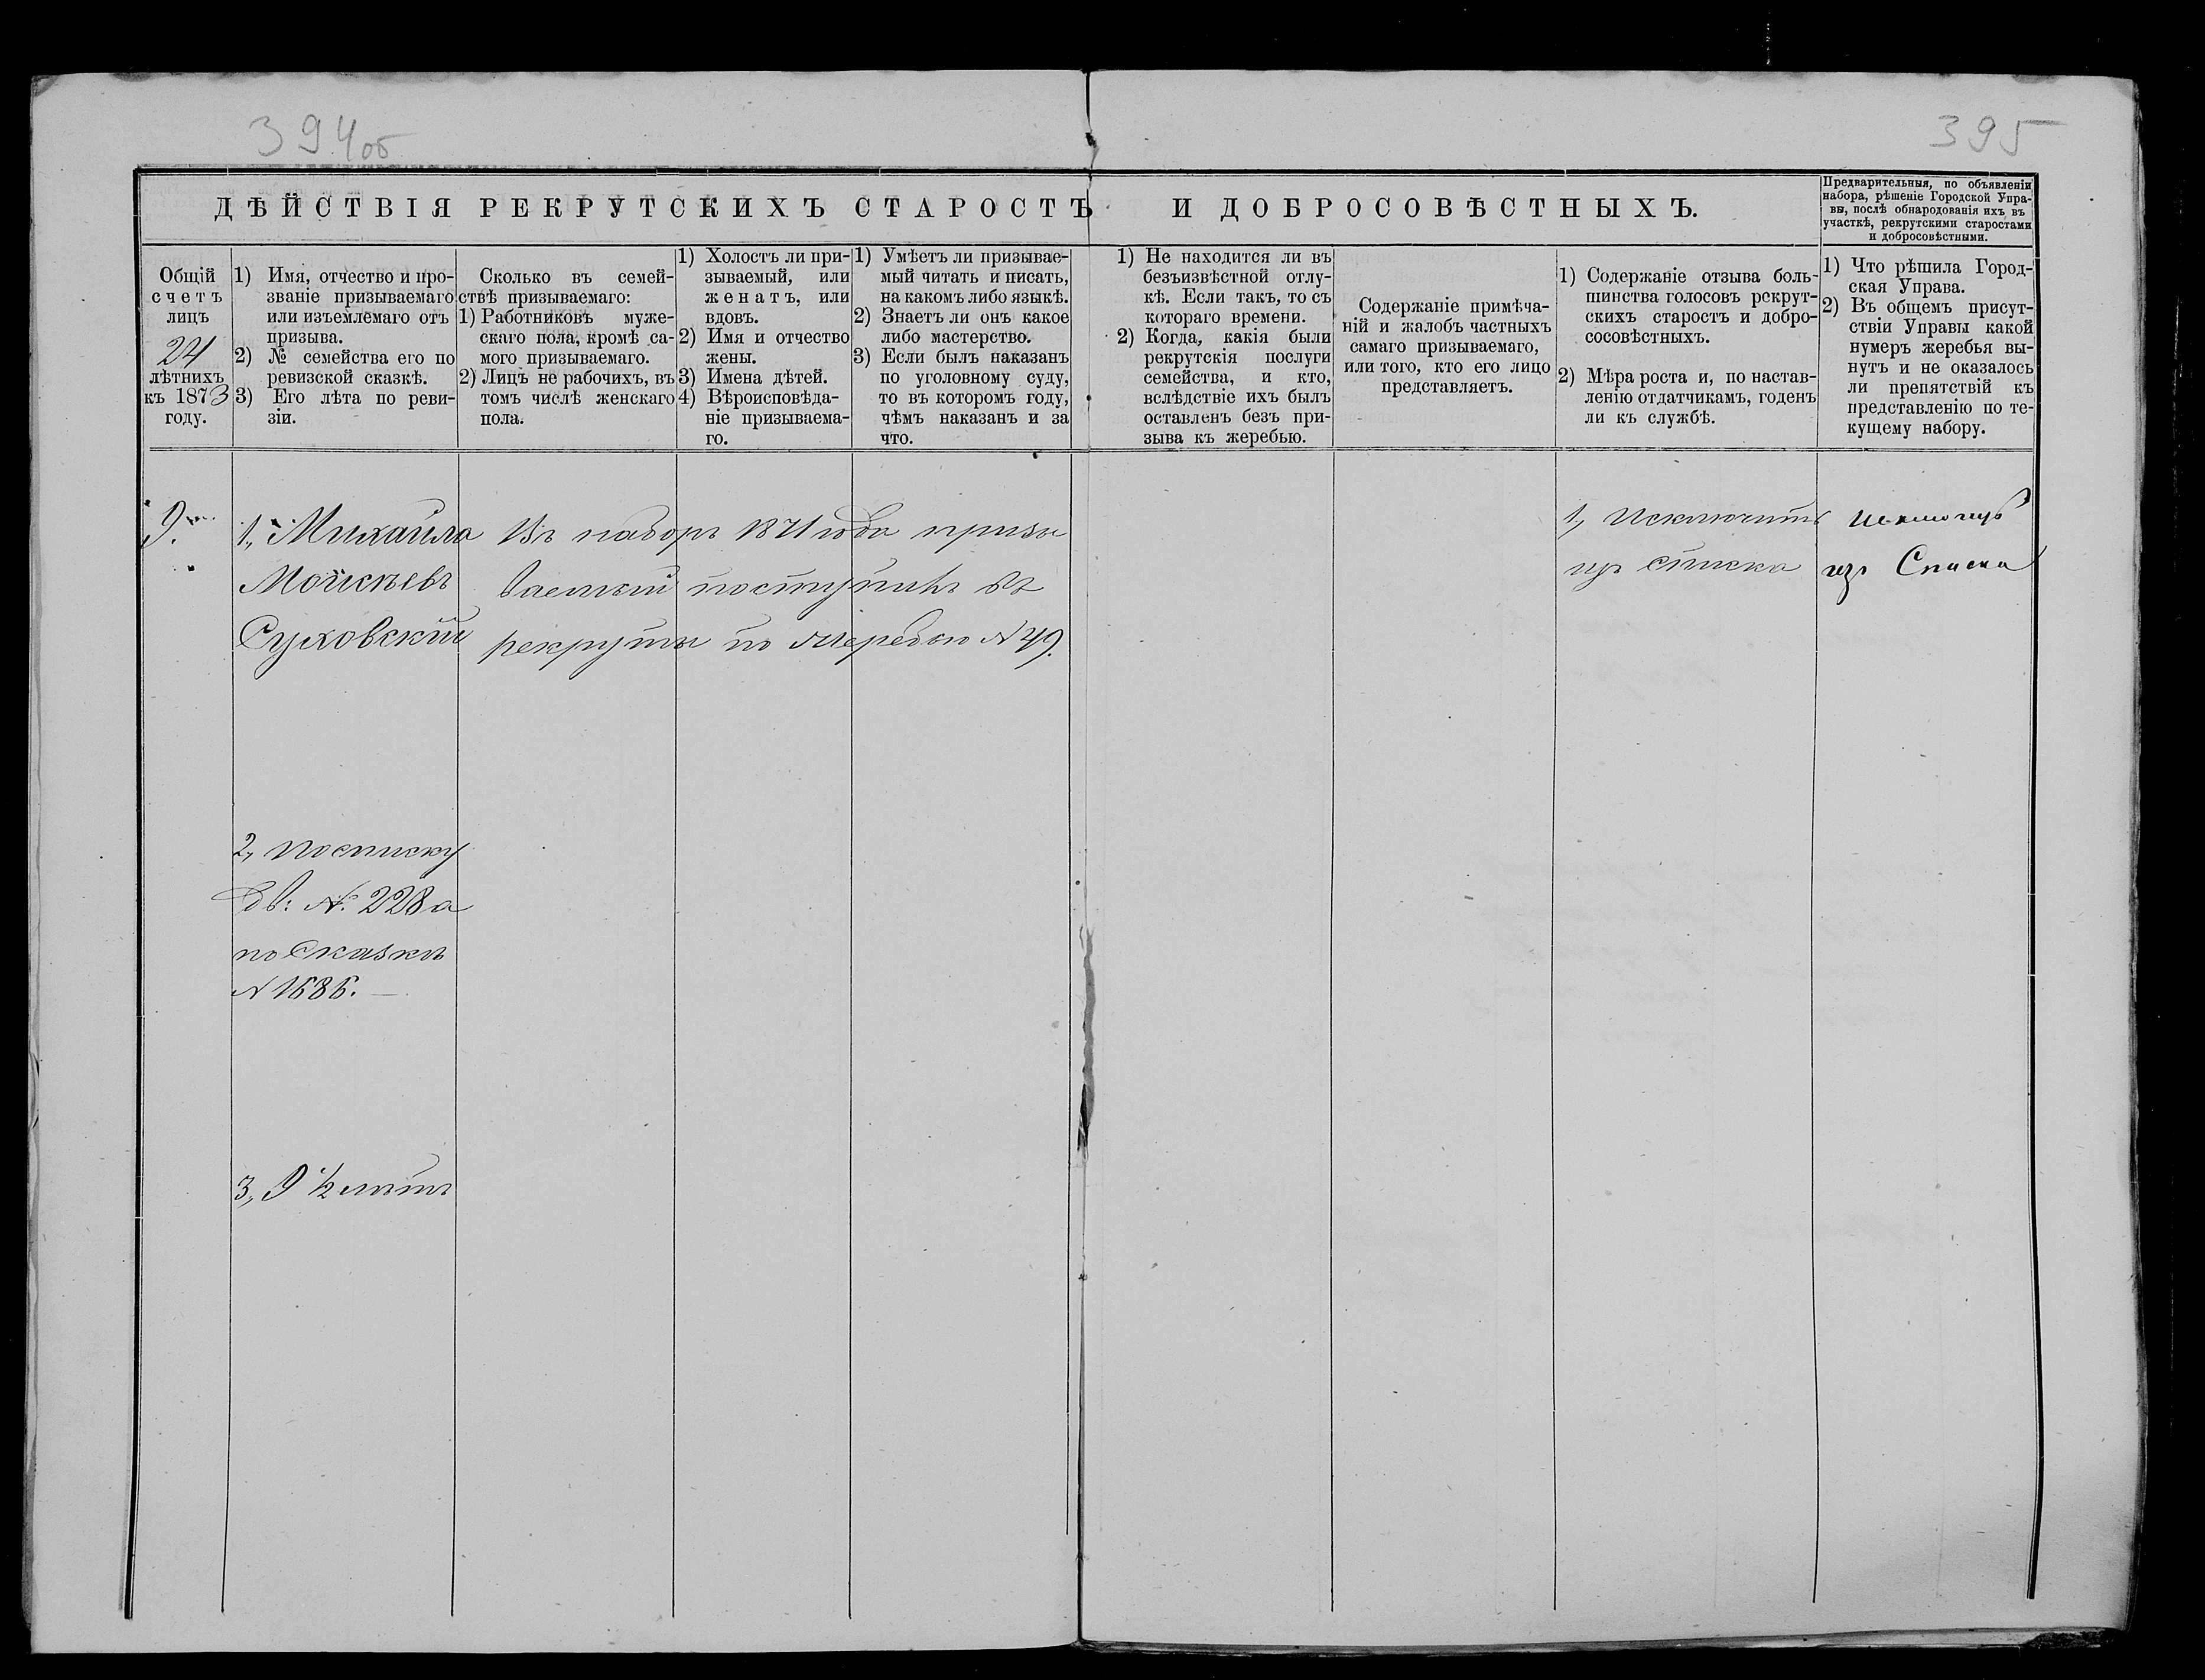 394 об
395
ДѢЙСТВІЯ РЕКРУТСКИХЪ СТАРОСТЪ И ДОБРОСОВѢСТНЫХЪ.
Предварительныя, по объявленіи
набора, рѣшеніе Городской Упра-
вы, послѣ обнародованія ихъ въ
участкѣ, рекрутскими старостами
и добросовѣстными.
Общій
счетъ
лицъ
24
лѣтнихъ
къ 1873
году.
1) Имя, отчество и про-
званіе призываемаго
или изъемлемаго отъ
призыва.
2) № семейства его по
ревизской сказкѣ.
3) Его лѣта по реви-
зіи.
Сколько въ семей-
ствѣ призываемаго:
1) Работниковъ муже-
скаго пола, кромѣ са-
мого призываемаго.
2) Лицъ не рабочихъ, въ
томъ числѣ женскаго
пола.
1) Холостъ ли при-
зываемый, или
женатъ, или
вдовъ.
2) Имя и отчество
жены.
3) Имена дѣтей.
4) Вѣроисповѣда-
ніе призываема-
го.
1) Умѣетъ ли призывае-
мый читать и писать,
на какомъ либо языкѣ.
2) Знаетъ ли онъ какое
либо мастерство.
3) Если былъ наказанъ
по уголовному суду,
то въ которомъ году,
чѣмъ наказанъ и за
что.
1) Не находится ли въ
безъизвѣстной отлу-
кѣ. Если такъ, то съ
котораго времени.
2) Когда, какія были
рекрутскія послуги
семейства, и кто,
вслѣдствіе ихъ былъ
оставленъ безъ при-
зыва къ жеребью.
Содержаніе примѣча-
ній и жалобъ частныхъ
самаго призываемаго,
или того, кто его лицо
представляетъ.
1) Содержаніе отзыва боль-
шинства голосовъ рекрут-
скихъ старостъ и добро-
сосовѣстныхъ.
2) Мѣра роста и, по настав-
ленію отдатчикамъ, годенъ
ли къ службѣ.
1) Что рѣшила Город-
ская Управа.
2) Въ общемъ присут-
ствіи Управы какой
нумеръ жеребья вы-
нутъ и не оказалось
ли препятствій къ
представленію по те-
кущему набору.
9.
1., Михаила
Моисѣевъ
Суховскій
2., по списку
дв: № 228 а
по Сказкѣ
№ 1686.
3., 9 ½ лѣтъ
Въ наборъ 1871 года призы
ваемый поступилъ въ
рекруты по жеребью № 49.
1., Исключить
изъ списка
изъ Списка